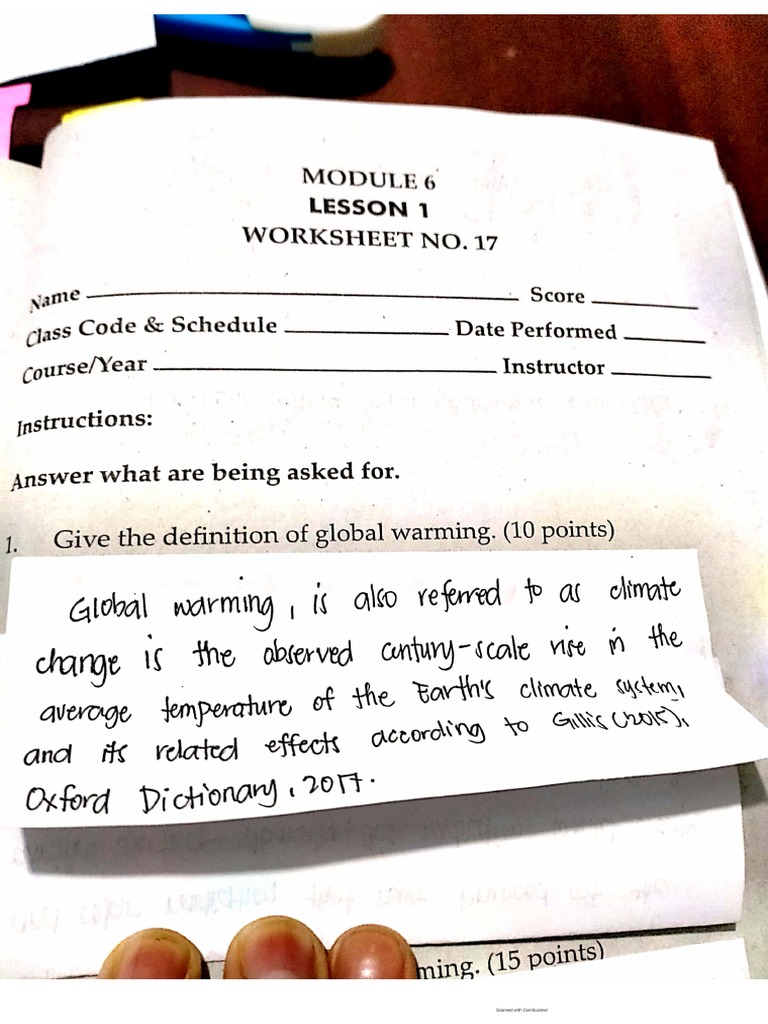 MODULE 6
LESSON 1
WORKSHEET NO. 17
Name Score
Class Code & Schedule Date Performed
Course/Year Instructor
Instructions:
Answer what are being asked for.
1. Give the definition of global warming. (10 points)
Global warming, is also referred to as climate
change is the observed century-scale rise in the
average temperature of the Earth's climate system,
and its related effects according to Gillis (2015),
Oxford Dictionary, 2017.
ming. (15 points)
Scanned with CamScanner